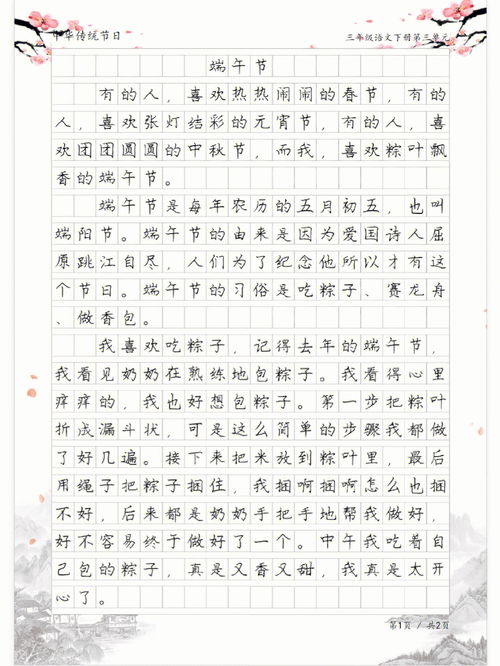 中华传统节日
三年级语文下册第三单元
端午节
有的人，喜欢热热闹闹的春节，有的
人，喜欢张灯结彩的元宵节，有的人，喜
欢团团圆圆的中秋节，而我，喜欢粽叶飘
香的端午节。
端午节是每年农历的五月初五，也叫
端阳节。端午节的由来是因为爱国诗人屈
原跳江自尽，人们为了纪念他所以才有这
个节日。端午节的习俗是吃粽子、赛龙舟
、做香包。
我喜欢吃粽子，记得去年的端午节，
我看见奶奶在熟练地包粽子。我看得心里
痒痒的，我也好想包粽子。第一步把粽叶
折成漏斗状，可是这么简单的步骤我都做
了好几遍。接下来把米放到粽叶里，最后
用绳子把粽子捆住，我捆啊捆啊怎么也捆
不好，后来都是奶奶手把手地帮我做好，
好不容易终于做好了一个。中午我吃着自
己包的粽子，真是又香又甜，我真是太开
心了。
第1页 / 共2页